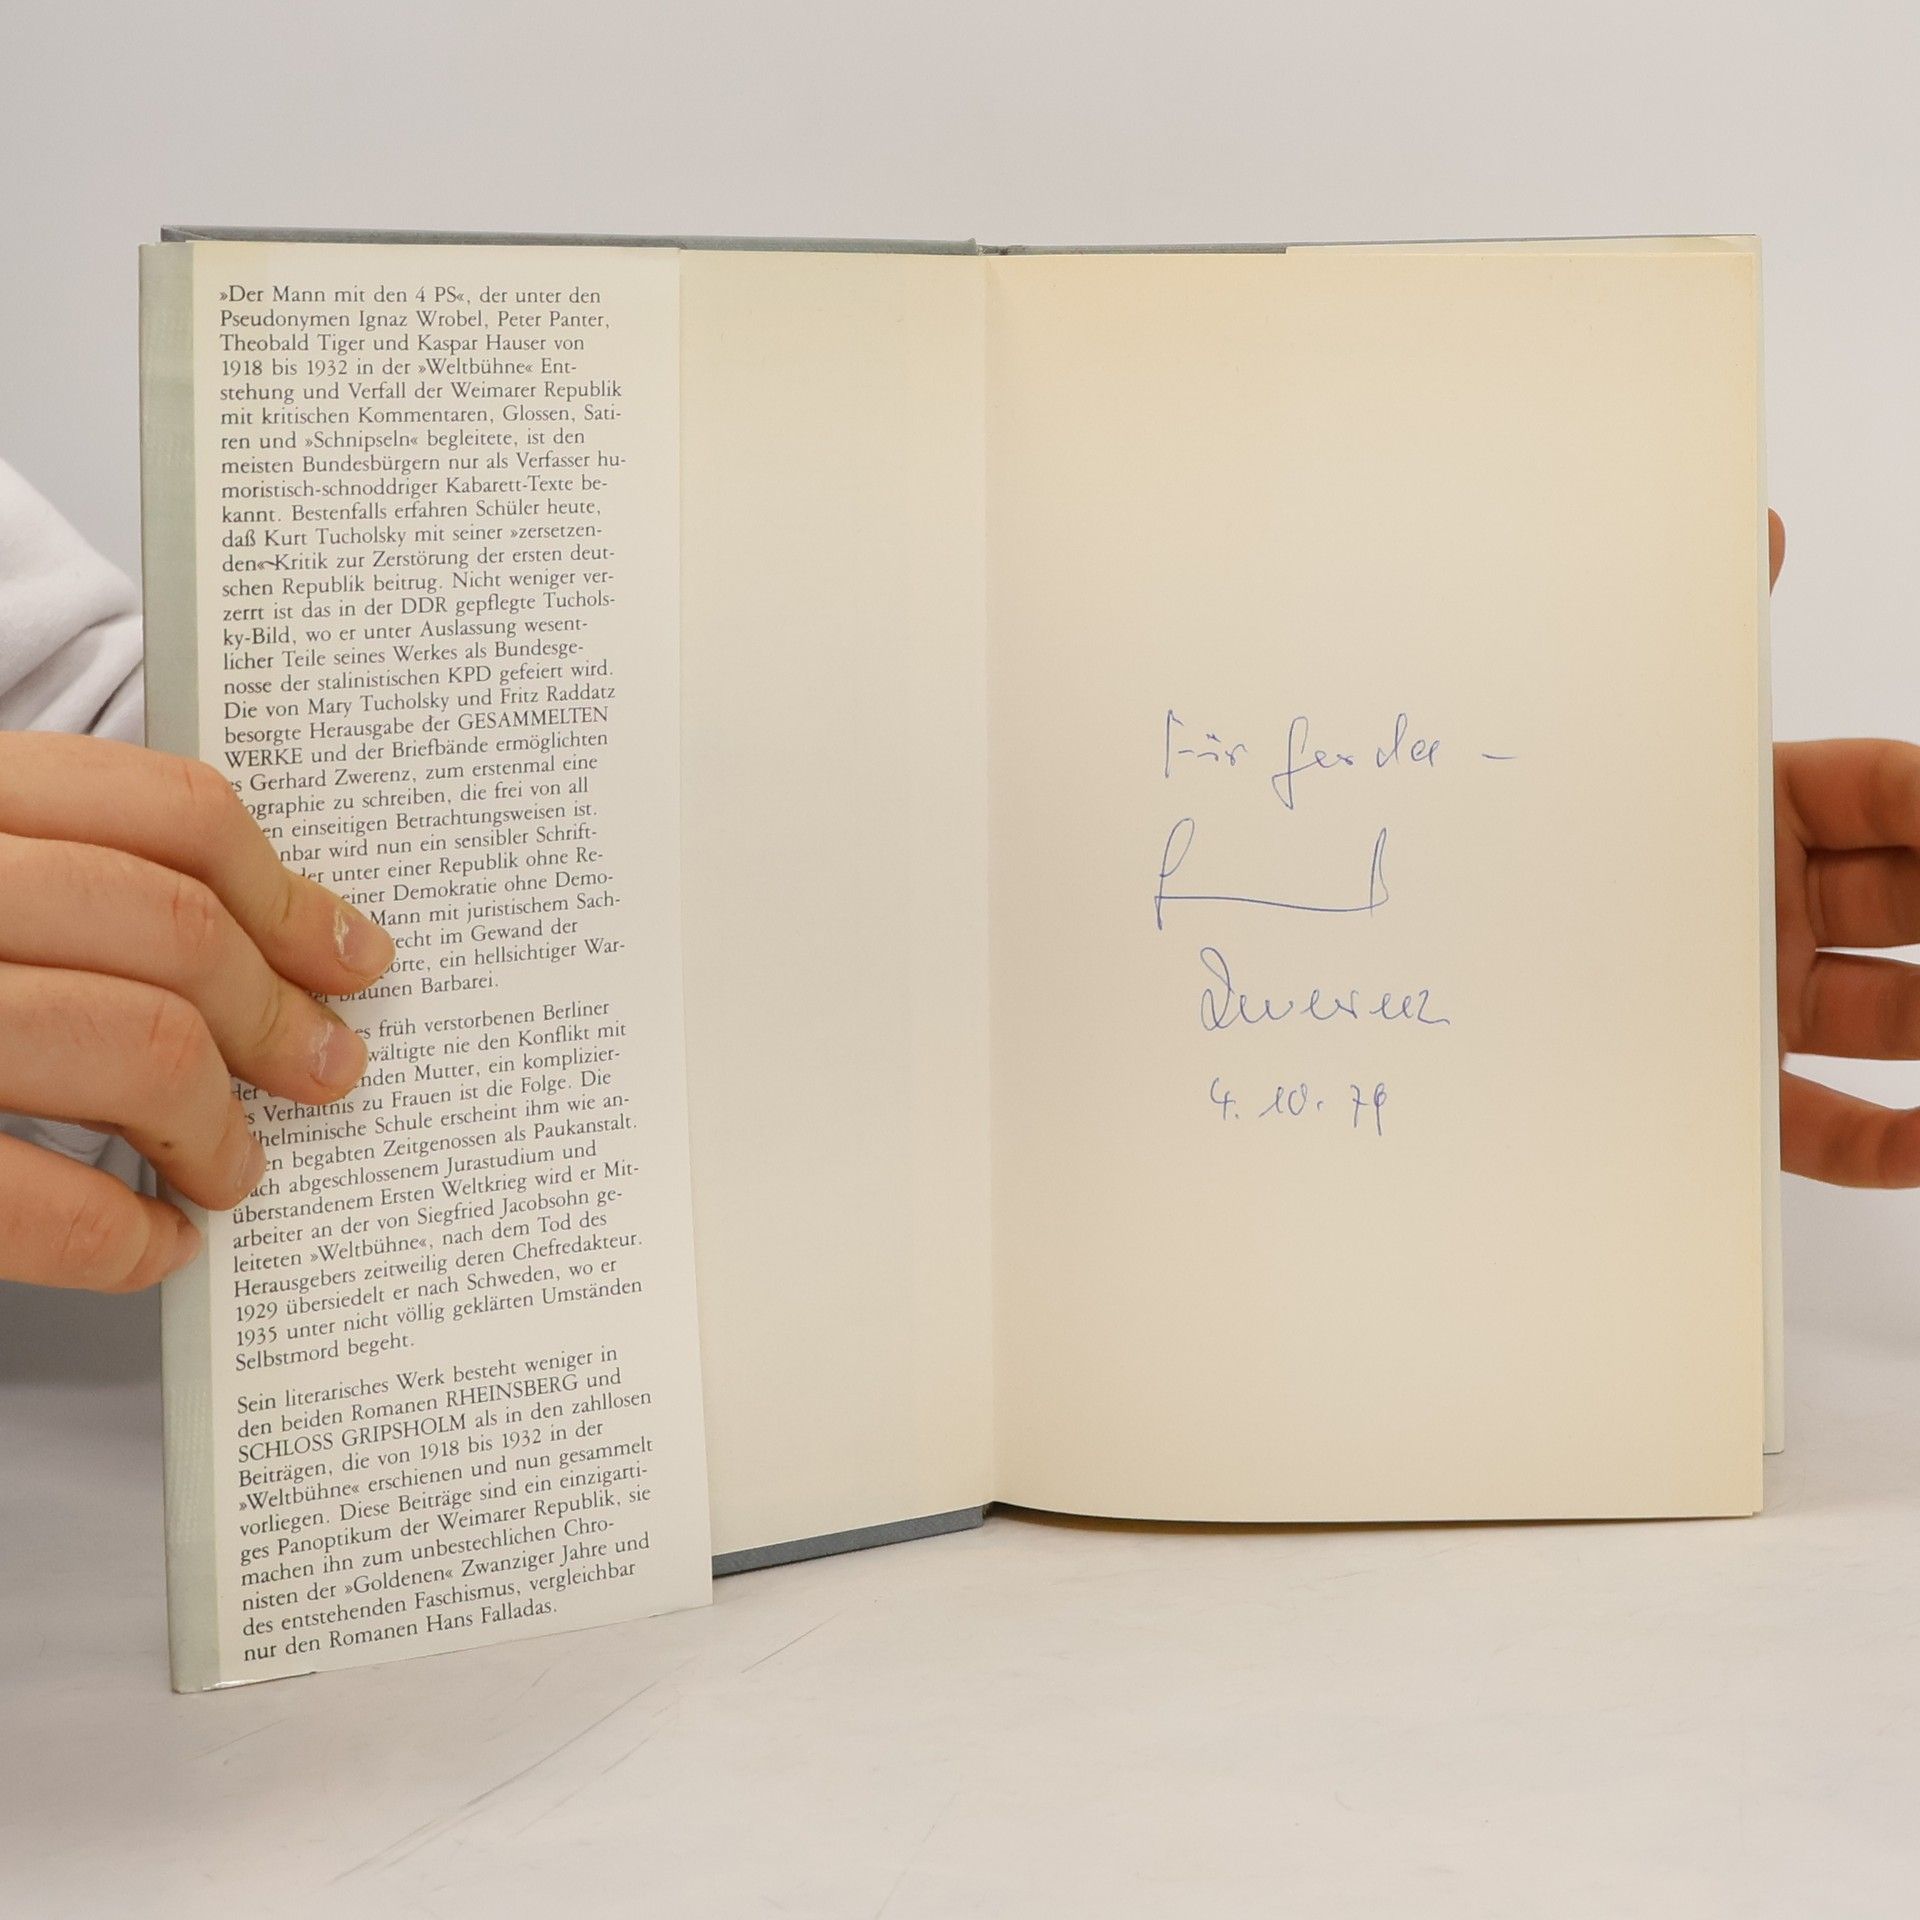 »Der Mann mit den 4 PS«, der unter den
Pseudonymen Ignaz Wrobel, Peter Panter,
Theobald Tiger und Kaspar Hauser von
1918 bis 1932 in der »Weltbühne« Ent-
stehung und Verfall der Weimarer Republik
mit kritischen Kommentaren, Glossen, Sati-
ren und »Schnipseln« begleitete, ist den
meisten Bundesbürgern nur als Verfasser hu-
moristisch-schnoddriger Kabarett-Texte be-
kannt. Bestenfalls erfahren Schüler heute,
daß Kurt Tucholsky mit seiner »zersetzen-
den« Kritik zur Zerstörung der ersten deut-
schen Republik beitrug. Nicht weniger ver-
zerrt ist das in der DDR gepflegte Tuchols-
ky-Bild, wo er unter Auslassung wesent-
licher Teile seines Werkes als Bundesge-
nosse der stalinistischen KPD gefeiert wird.
Die von Mary Tucholsky und Fritz Raddatz
besorgte Herausgabe der GESAMMELTEN
WERKE und der Briefbände ermöglichten
es Gerhard Zwerenz, zum erstenmal eine
ographie zu schreiben, die frei von all
en einseitigen Betrachtungsweisen ist.
nbar wird nun ein sensibler Schrift-
der unter einer Republik ohne Re-
einer Demokratie ohne Demo-
Mann mit juristischem Sach-
recht im Gewand der
örte, ein hellsichtiger War-
der braunen Barbarei.
es früh verstorbenen Berliner
wältigte nie den Konflikt mit
der enden Mutter, ein komplizier-
s Verhältnis zu Frauen ist die Folge. Die
lhelminische Schule erscheint ihm wie an-
en begabten Zeitgenossen als Paukanstalt.
ach abgeschlossenem Jurastudium und
überstandenem Ersten Weltkrieg wird er Mit-
arbeiter an der von Siegfried Jacobsohn ge-
leiteten »Weltbühne«, nach dem Tod des
Herausgebers zeitweilig deren Chefredakteur.
1929 übersiedelt er nach Schweden, wo er
1935 unter nicht völlig geklärten Umständen
Selbstmord begeht.
Sein literarisches Werk besteht weniger in
den beiden Romanen RHEINSBERG und
SCHLOSS GRIPSHOLM als in den zahllosen
Beiträgen, die von 1918 bis 1932 in der
»Weltbühne« erschienen und nun gesammelt
vorliegen. Diese Beiträge sind ein einzigarti-
ges Panoptikum der Weimarer Republik, sie
machen ihn zum unbestechlichen Chro-
nisten der »Goldenen« Zwanziger Jahre und
des entstehenden Faschismus, vergleichbar
nur den Romanen Hans Falladas.
Für Gerda –
Zwerenz
4. 10. 79